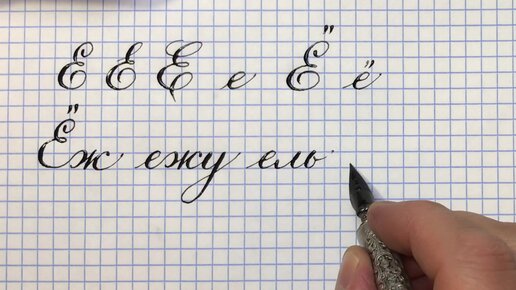 Е Е Е е Ё ё
Ёж ежу ель